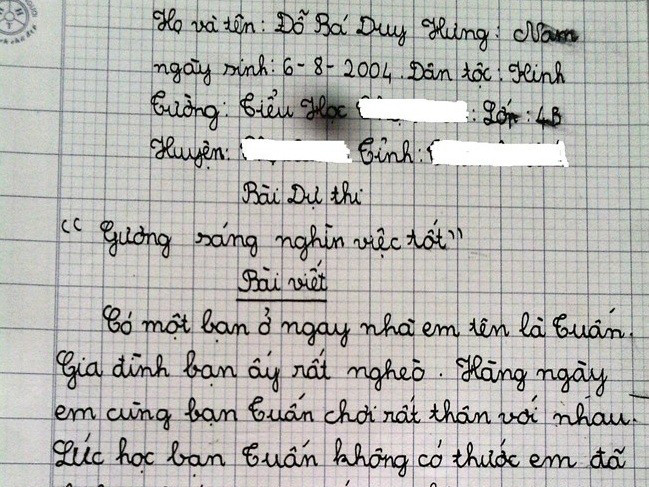 Họ và tên: Đỗ Bá Duy Hưng: Nam
ngày sinh: 6-8-2004. Dân tộc: Kinh
Trường: Tiểu Học : Lớp: 4B
Huyện: Tỉnh:
Bài Dự thi
"Gương sáng nghìn việc tốt"
Bài viết
Có một bạn ở ngay nhà em tên là Tuấn.
Gia đình bạn ấy rất nghèo. Hàng ngày
em cùng bạn Tuấn chơi rất thân với nhau.
Lúc học bạn Tuấn không có thước em đã